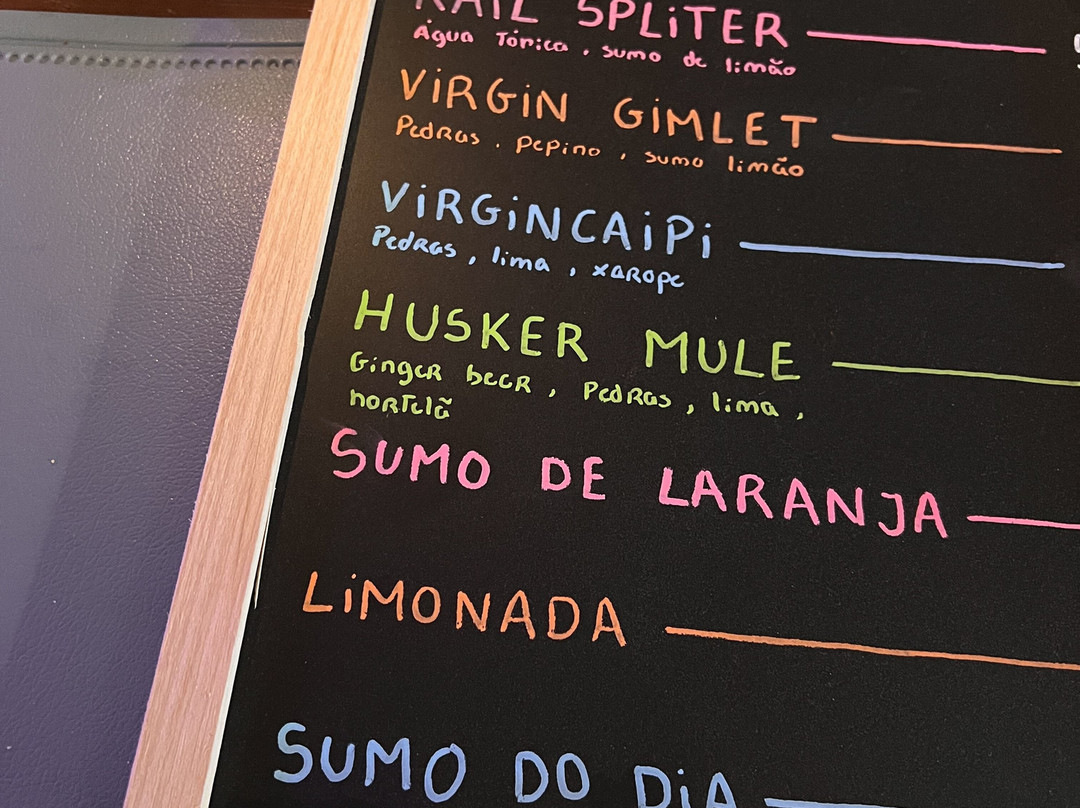 RAIL SPLITER
Água Tónica, sumo de limão
VIRGIN GIMLET
Pedras, pepino, sumo limão
VIRGINCAIPI
Pedras, lima, xarope
HUSKER MULE
Ginger beer, Pedras, lima,
hortelã
SUMO DE LARANJA
LIMONADA
SUMO DO DIA